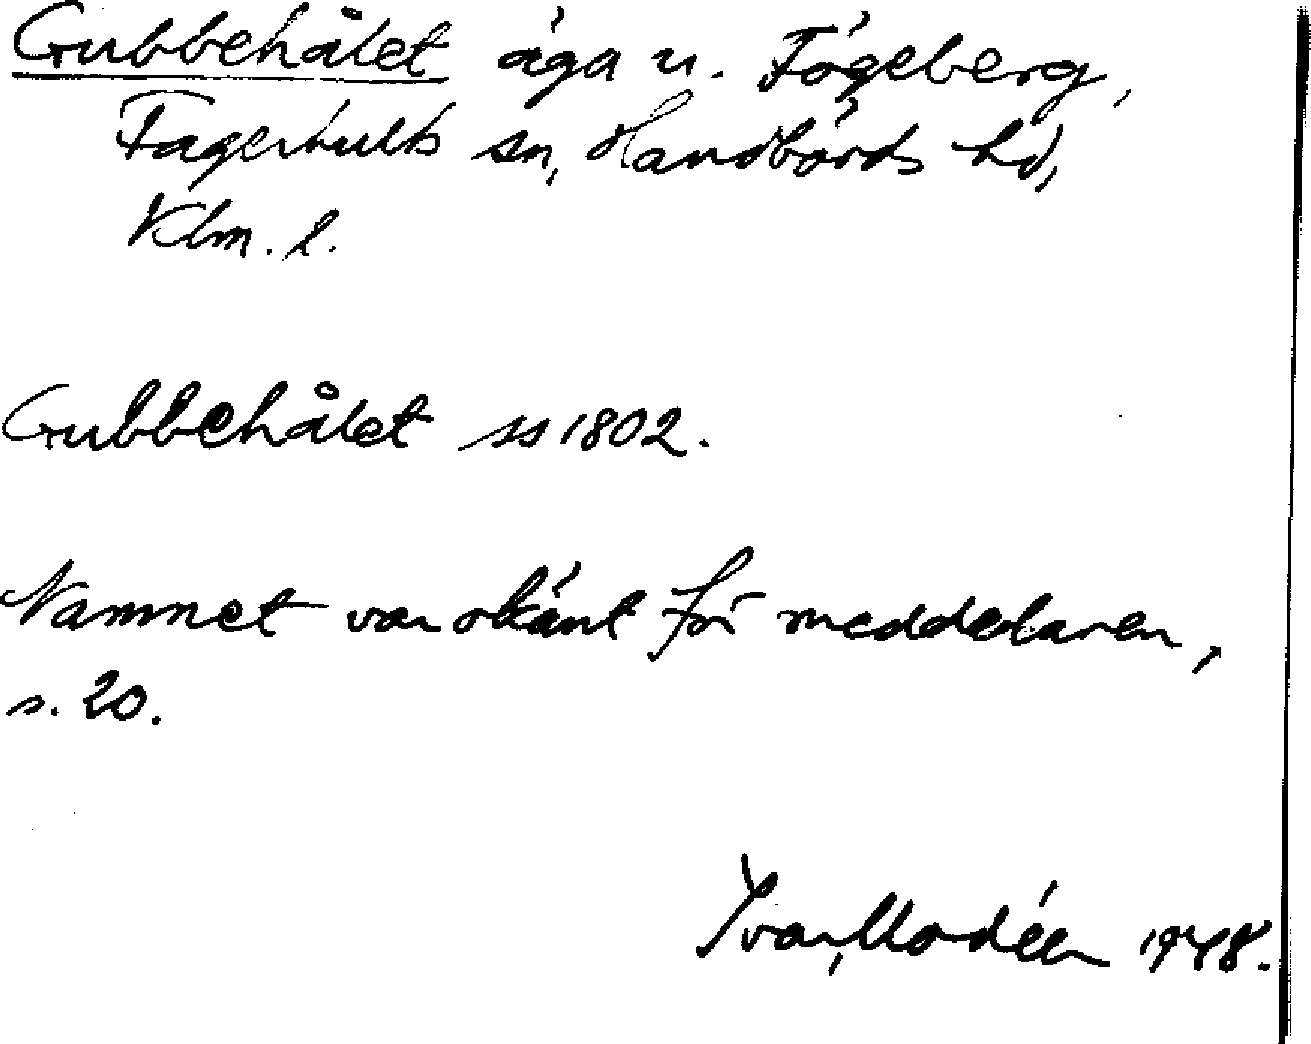 Gubbehålet äga u. Fögeberg,
Fagerhults sn, Handbörds hd,
Klm. l.
Gubbehålet ss 1802.
Namnet var okänt för meddelaren,
s. 20.
Yvar Modéer 1948.